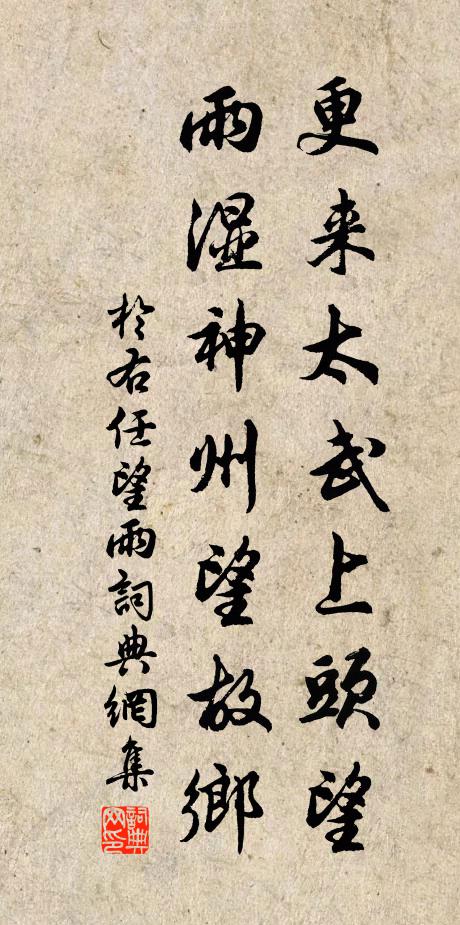 更来太武上頭望
雨湿神州望故鄉
於右任望雨詞典網集
詞典网印